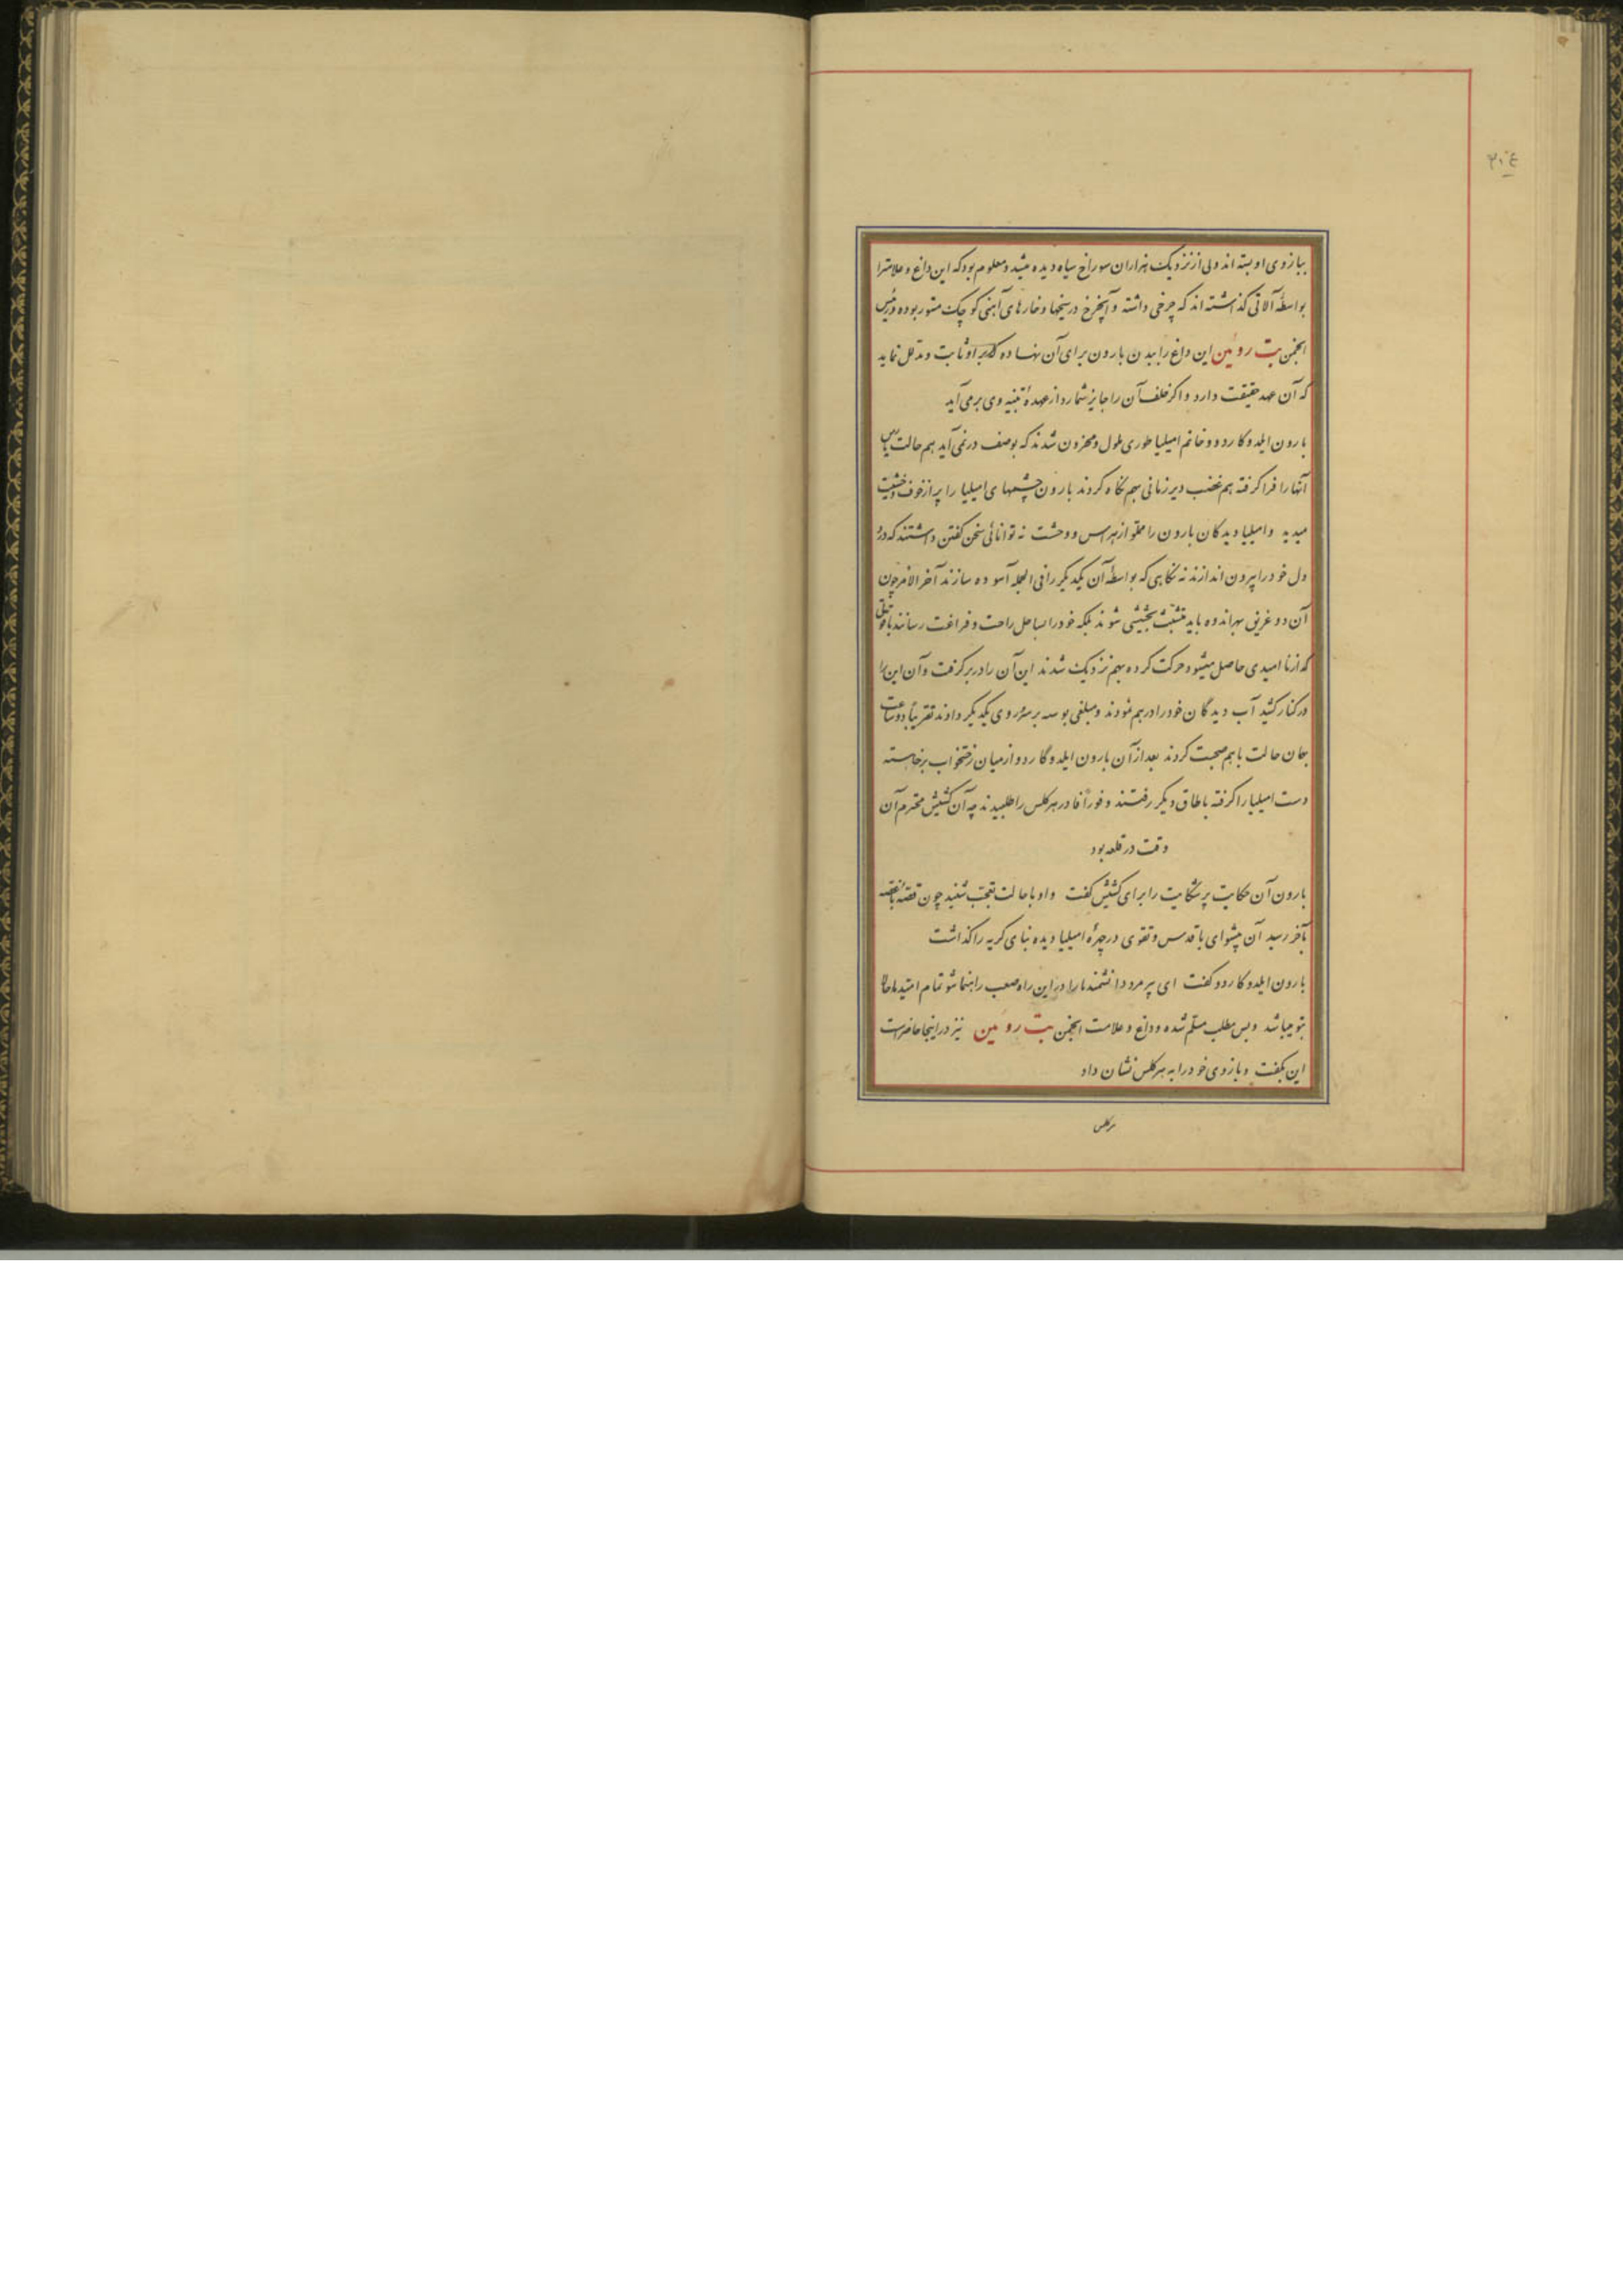 ببازوی او بسته اند ولی از نزدیک هزاران سوراخ سیاه دیده میشد و معلوم بود که این داغ و علامترا
بواسطهٔ آلاتی گذاشته اند که چرخی داشته و آنچرخ در میخها و خارهای آهنی کوچک مستور بوده و رئیس
انجمن بت روئین این داغ را ببدن بارون برای آن نهاده که بر او ثابت و مدلل نماید
که آن عهد حقیقت دارد و اگر خلف آن را جایز شمارد از عهدهٔ تنبیه وی برمی آید
بارون ایلدوکاردو و خانم امیلیا طوری ملول و محزون شدند که بوصف در نمی آید هم حالت یأس
آنها را فرا گرفته هم غضب دیر زمانی بهم نگاه کردند بارون چشمهای امیلیا را پر از خوف و خشیت
میدید و امیلیا دیدگان بارون را مملو از هراس و وحشت نه توانائی سخن گفتن داشتند که درد
دل خود را بیرون اندازند نه نگاهی که بواسطهٔ آن یکدیگر را فی الجمله آسوده سازند آخر الامر چون
آن دو غریق بحر اندوه باید متشبث بخشیشی شوند بلکه خود را بساحل راحت و فراغت رسانند با قوتی
که از نا امیدی حاصل میشود حرکت کرده بهم نزدیک شدند این آن را در بر گرفت و آن این را
در کنار کشید آب دیدگان خود را در هم نمودند و مبلغی بوسه بر سر و روی یکدیگر دادند تقریباً دو ساعت
بهمان حالت با هم صحبت کردند بعد از آن بارون ایلدوگاردو از میان رختخواب برخاسته
دست امیلیا را گرفته باطاق دیگر رفتند و فوراً فادر هرکلس را طلبیدند چه آن کشیش محترم آن
وقت در قلعه بود
بارون آن حکایت پر شکایت را برای کشیش گفت و او با حالت تعجب شنید چون قصه با غصه
بآخر رسید آن پیشوای با قدس و تقوی در چهرهٔ امیلیا دیده بنای گریه را گذاشت
بارون ایلدوکاردو گفت ای پیر مرد دانشمند ما را در این راه صعب راهنما شو تمام امید ما حالا
بتو میباشد و بس مطلب مسلم شده و داغ و علامت انجمن بت روئین نیز در اینجا حاضر است
این بگفت و بازوی خود را به هرکلس نشان داد
هرکلس